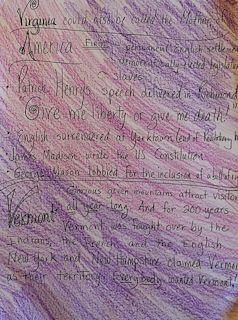 Virginia could also be called the Mother of
America First permanent English settleme
democratically elected legislat
slaves
• Patrick Henry's speech delivered in Richmond
Give me liberty or give me death!
• English surrendered at Yorktown (end of
James Madison wrote the US Constitution
• George Mason lobbied for the inclusion of a bill of
Vermont Glorious green mountains attract visitor
all year long. And for 200 years
Vermont was fought over by the
Indians, the French and the English
New York and New Hampshire claimed Vermont
as their territory. Everybody wanted Vermont!